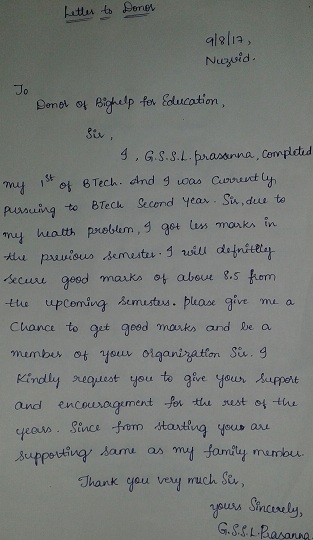 Letter to Donor
9/8/17,
Nuzvid.
To
Donor of Bighelp for Education,
Sir,
I, G.S.S.L. prasanna, completed
my 1st of BTech. And I was Currently
pursuing to BTech Second year. Sir, due to
my health problem, I got less marks in
the previous semester. I will definitely
secure good marks of above 8.5 from
the upcoming semesters. please give me a
Chance to get good marks and be a
member of your organization Sir. I
Kindly request you to give your Support
and encouragement for the rest of the
years. Since from starting you are
Supporting same as my family member.
Thank you very much Sir,
yours Sincerely,
G.S.S.L. Prasanna